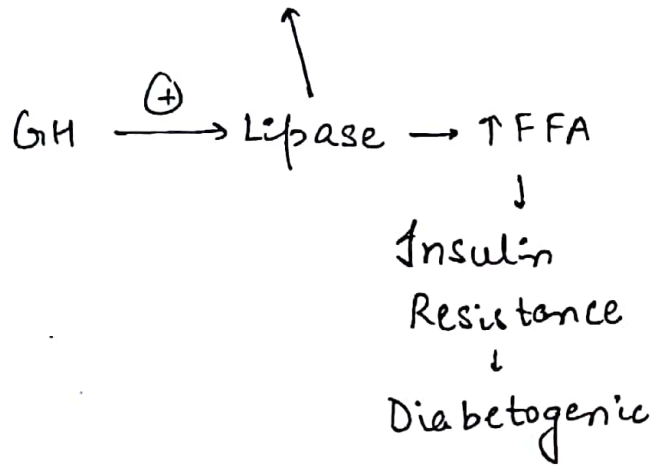 ⊕
GH → Lipase → ↑ FFA
↓
Insulin
Resistance
↓
Diabetogenic